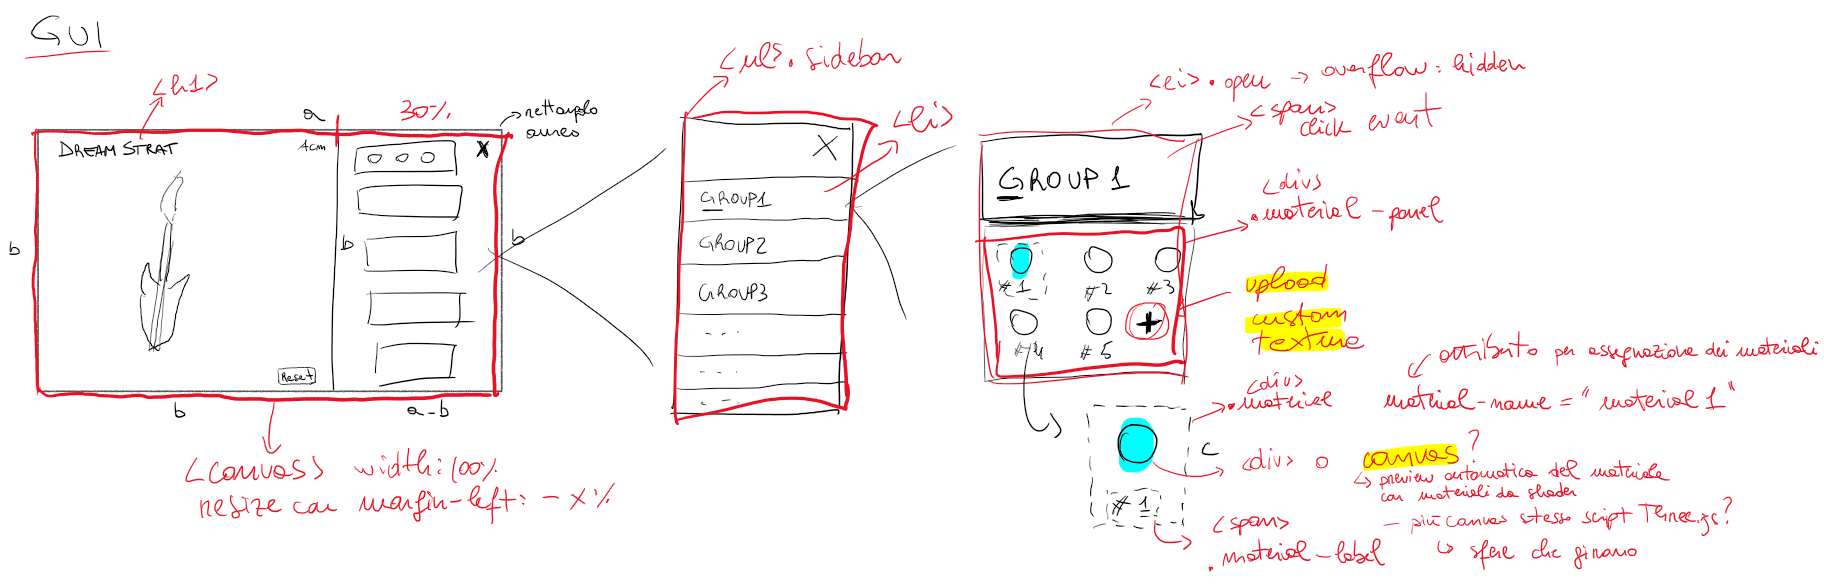 GUI
<h1>
a
30%
rettangolo
aureo
4cm
DREAM STRAT
X
b
b
b
Reset
b
a-b
<canvas> width: 100%
resize con margin-left: - X%
<ul>. sidebar
<li>
X
GROUP1
GROUP2
GROUP3
- - -
- - -
- - -
<li>.open → overflow: hidden
<span>
click event
GROUP 1
<div>
.material-panel
#1 #2 #3
#4 #5 +
upload
custom
texture
attributo per assegnazione dei materiali
material-name = "material 1"
<div>
.material
<div> o canvas?
preview automatica del materiale
con materiali da shader
- più canvas stesso script Three.js?
sfere che girano
#1
<span>
.material-label